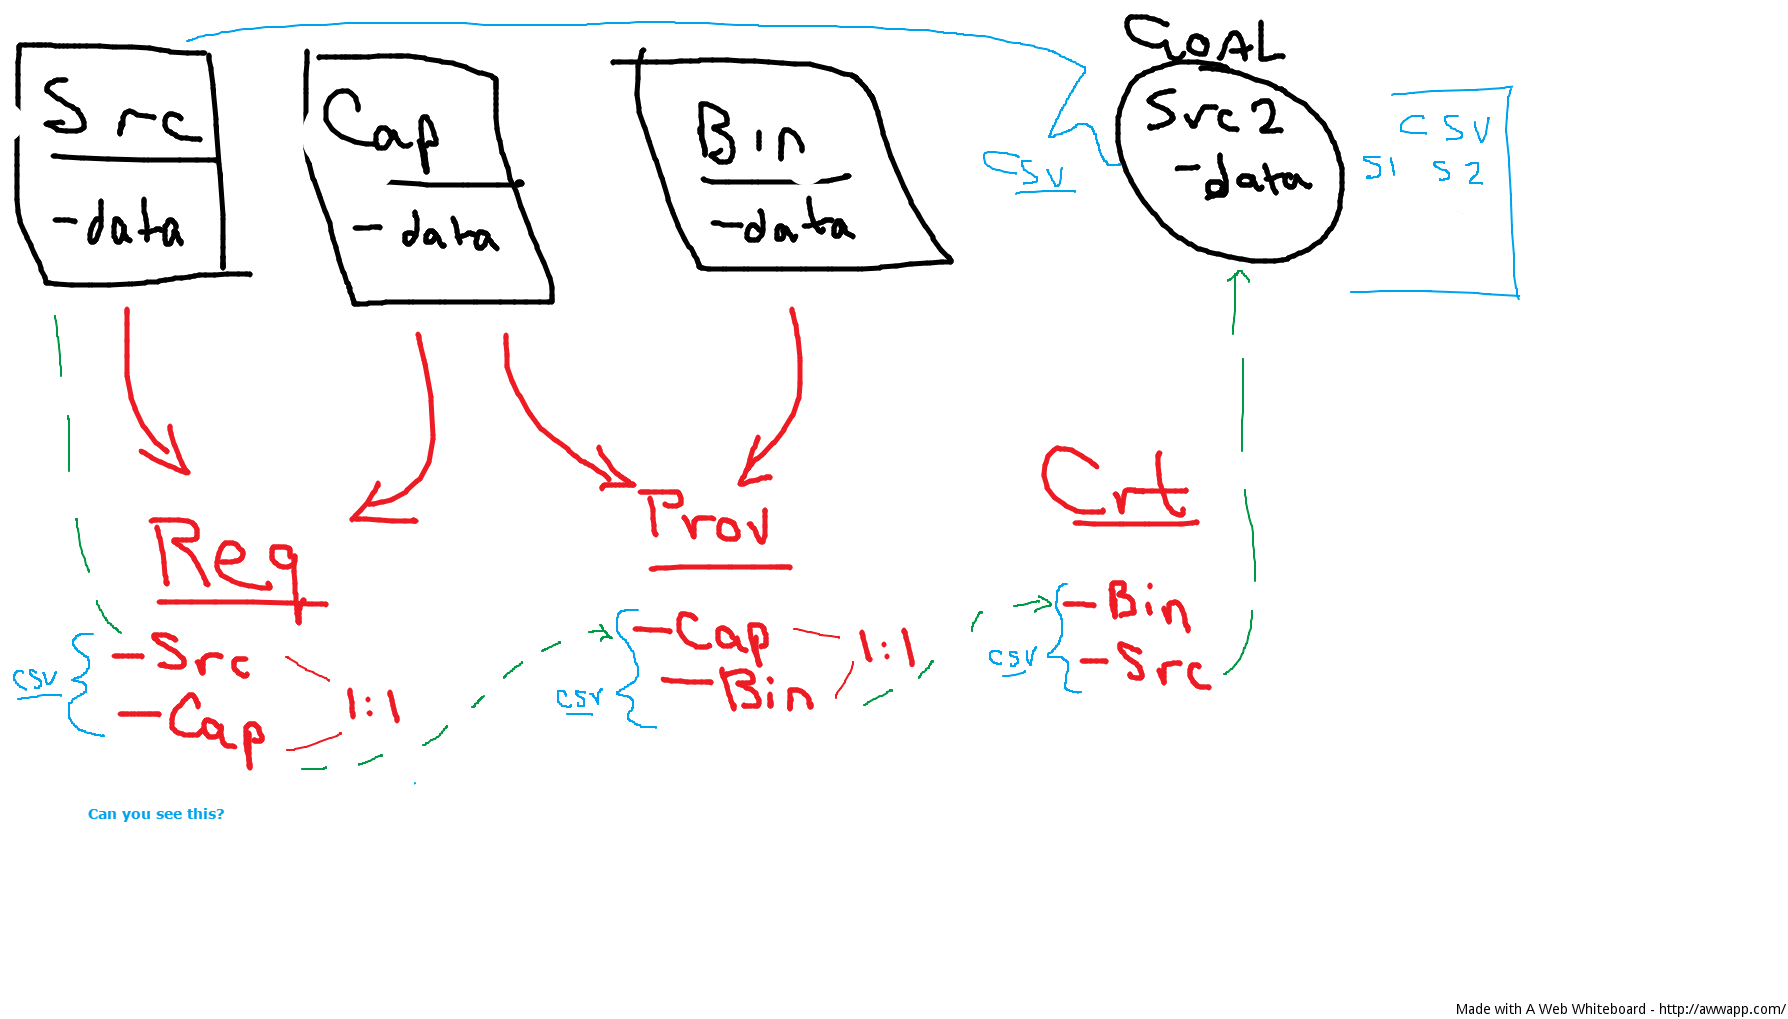 GOAL
Src
-data
Cap
-data
Bin
-data
Src2
-data
CSV
CSV
S1 S2
Req
-Src
-Cap
1:1
CSV
Prov
-Cap
-Bin
1:1
CSV
Crt
-Bin
-Src
CSV
Can you see this?
Made with A Web Whiteboard - http://awwapp.com/